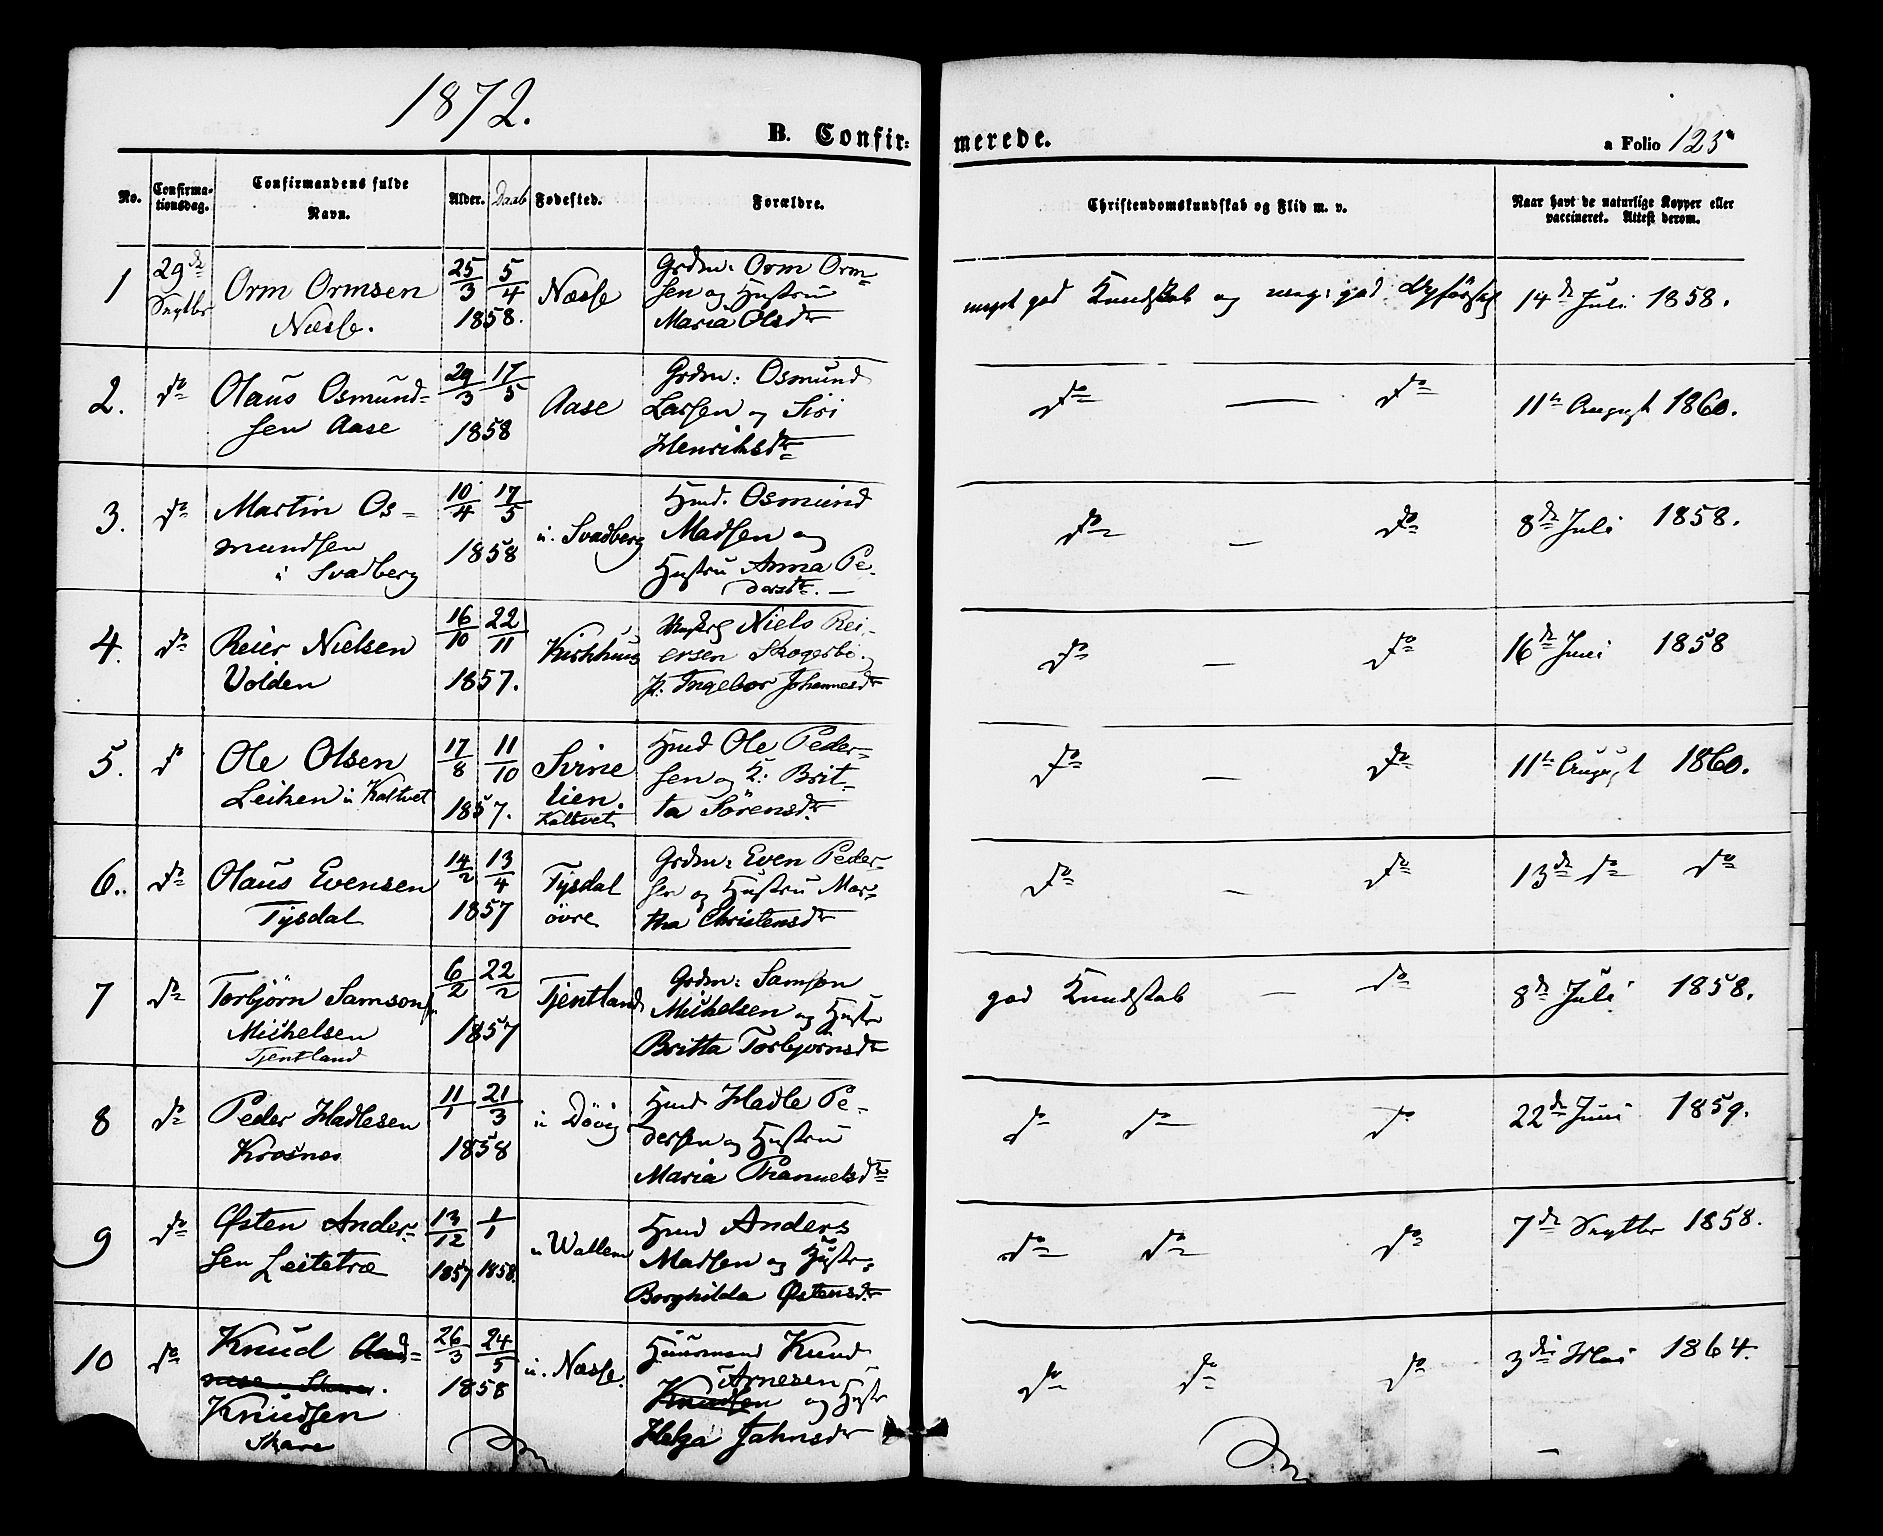 1872.
B. Confir-
merede.
a Folio 123
No.
Confirma-
tionsdag.
Confirmandens fulde
Navn.
Alder.
Daab
Fødested.
Forældre.
Christendomskundskab og Flid m. v.
Naar havt de naturlige Kopper eller
vaccineret. Attest derom.
1
29de
Septbr
Orm Ormsen
Næsse.
25/3 5/4
1858.
Næsse
Grdm: Orm Orm-
sen og Hustru
Maria Olsdtr
meget god Kundskab og meg: god
14de Juli 1858.
2.
do
Olaus Osmund-
sen Aase
29/3 17/5
1858
Aase
Grdm: Osmund
Larsen og Siri
Henriksdtr
do — do
11te August 1860.
3.
do
Martin Os-
mundsen
i Svadberg
10/4 17/5
1858
u. Svadberg
Hmd. Osmund
Madsen og
Hustru Anna Pe-
dersdtr. —
do — do
8de Juli 1858.
4.
do
Reier Nielsen
Volden
16/10 22/11
1857.
Kirkhuus
Niels Rei-
ersen
p: Ingebor Johannesdtr
do — do
16de Juni 1858
5.
do
Ole Olsen
Leiken u Kaltvet
17/8 11/10
1857.
Svine
lien.
Kaltvet
Hmd Ole Peder-
sen og H: Brit-
ta Sørensdtr.
do — do
11te August 1860.
6..
do
Olaus Evensen
Tysdal
14/2 13/4
1857
Tysdal
øvre
Grdm: Even Peder-
sen og Hustru Mar-
tha Christensdtr
do — do
13de do do
7
do
Torbjörn Samsonsen
Michelsen
Tjentland
6/2 22/2
1857
Tjentland
Grdm: Samson
Michelsen og Hustr
Britta Torbjörnsdtr
god Kundskab — do
8de Juli 1858.
8
do
Peder Hadlesen
Krosnes
11/1 21/3
1858
u Døvig
Hmd Hadle Pe-
dersen og Hustru
Maria Thannelsdtr
do do do
22de Juni 1859.
9
do
Østen Ander-
sen Leitetræ
13/12 1/1
1857 1858.
u Wallem
Hmd Anders
Madsen og Hustr:
Borghilda Østensdtr
do do do
7de Septbr 1858.
10
do
Knud
Knudsen
Skare
26/3 24/5
1858
u. Næsse.
Huusmand Knud
Arnesen
Knudsen og Hustr
Helga Jahnsdtr
do do do
3die Mai 1864.
—